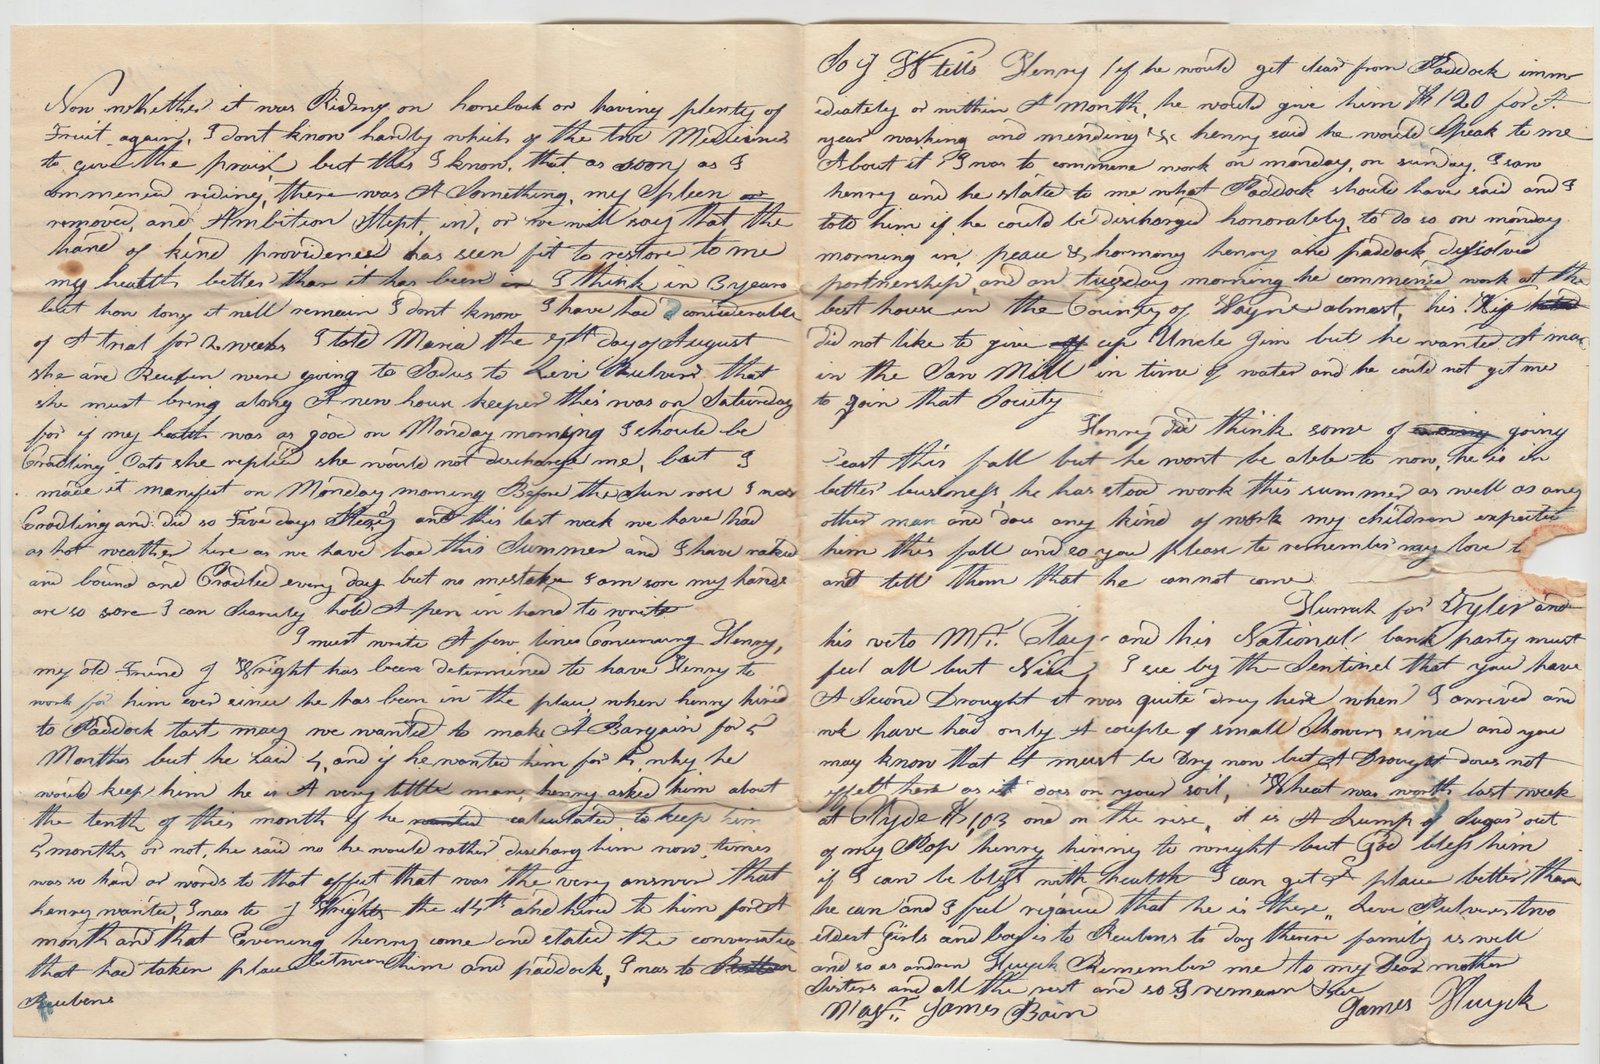 Now whether it was Riding on horseback or having plenty of
Fruit again, I dont know hardly which of the two Medicines
to give the praise, but this I know, that as soon as I
commenced riding, there was A Something, my Spleen or
removed, and Ambition Stept in, or we will say that the
hand of kind providence has seen fit to restore to me
my health better than it has been I think in 3 years
but how long it will remain I dont know I have had considerable
of A trial for 2 weeks I told Maria the 7th day of August
she and Reuben were going to Sodus to Levi Pulvers that
she must bring along A new house keeper this was on Saturday
for if my health was as good on Monday morning I should be
Cradling Oats she replied she would not discharge me, but I
made it manifest on Monday morning Before the Sun rose I was
Cradling and did so Five days Steady and this last week we have had
as hot weather here as we have had this Summer and I have raked
and bound and Cradled every day but no mistake I am sore my hands
are so sore I can Scarcely hold A pen in hand to write
I must write A few lines Concerning Henry,
my old Friend J Wright has been determined to have Henry to
work for him ever since he has been in the place, when henry hired
to Paddock last may we wanted to make A Bargain for 5
Months but he said 4, and if he wanted him for 5, why he
would keep him he is A very little man, henry asked him about
the tenth of this month if he wanted calculated to keep him
5 months or not, he said no he would rather discharg him now, times
was so hard or words to that effect that was the very answer that
henry wanted, I was to J Wrights the 14th and hired to him for A
month and that Evening henry come and stated the conversation
that had taken place between him and paddock, I was to
Reubens
So J W tells Henry if he would get clear from Paddock imm
idiately or within A month, he would give him $120 for A
year washing and mending &c henry said he would Speak to me
About it I was to commence work on monday, on sunday I saw
henry and he stated to me what Paddock should have said and I
told him if he could be discharged honorately, to do so on monday
morning in peace & harmony henry and paddock dissolved
partnership, and on tuesday morning he commenced work at the
best house in the County of Wayne almost, his
did not like to give up Uncle Jim but he wanted A man
in the Saw Mill in time of water and he could not get me
to join that Society
Henry did think some of going
east this fall but he wont be able to now, he is in
better business, he has stood work this summer as well as any
other man and does any kind of work my children expected
him this fall and so you please to remember my love t
and tell them that he cannot come
Hurrah for Tyler and
his veto Mr. Clay and his National bank party must
feel all but Nice, I see by the Sentinel that you have
A Second Drought it was quite dry here when I arrived and
we have had only A couple of small Showers since and you
may know that it must be Dry now but A Drought does not
effect here as it does on your soil, Wheat was worth last week
at Clyde $1,03 and on the rise, it is A Lump of Sugar out
of my Pop henry hiring to wright but God bless him
if I can be blest with health I can get A place better than
he can and I feel rejoiced that he is there, Levi Pulvers two
eldest Girls and boy is to Reubens to day thenre family is well
and so as andrew Huyck Remember me to my Dear mother
Sisters and all the rest and so I remain
Masr. James Bain
James Huyck